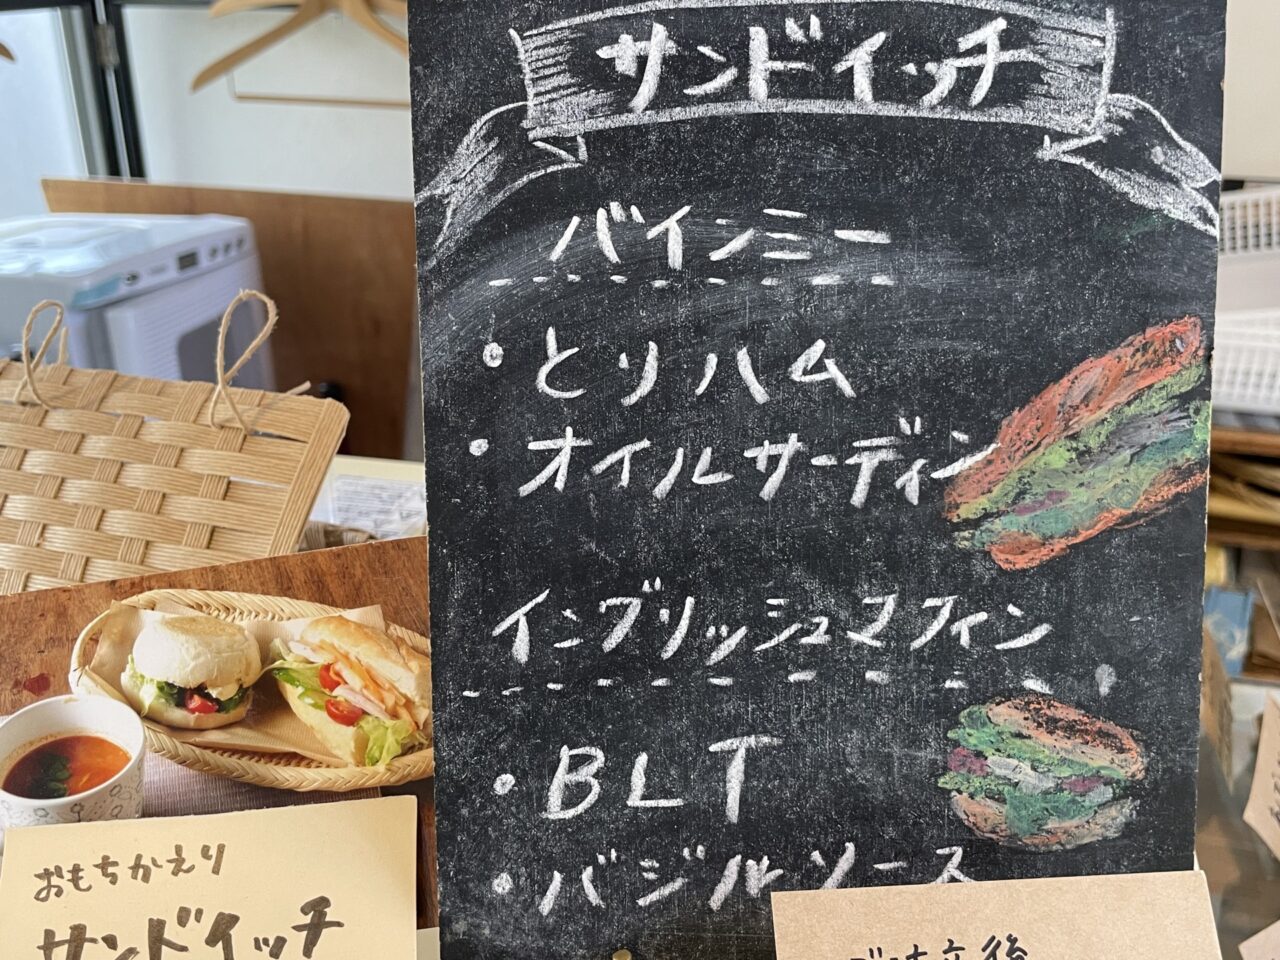 サンドイッチ
バインミー
・とりハム
・オイルサーディン
イングリッシュマフィン
・BLT
・バジルソース
おもちかえり
サンドイッチ
ご注文後